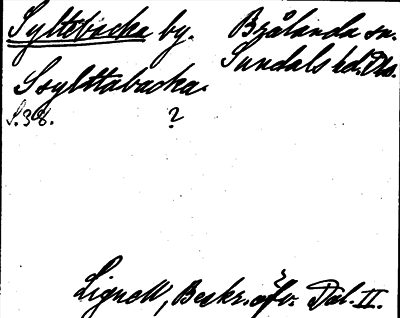 Syltebacka by. Brålanda sn.
Sundals hd. Dls.
Ssylttabacka.
S. 38. ?
Lignell, Beskr. öfv. Dal. II.